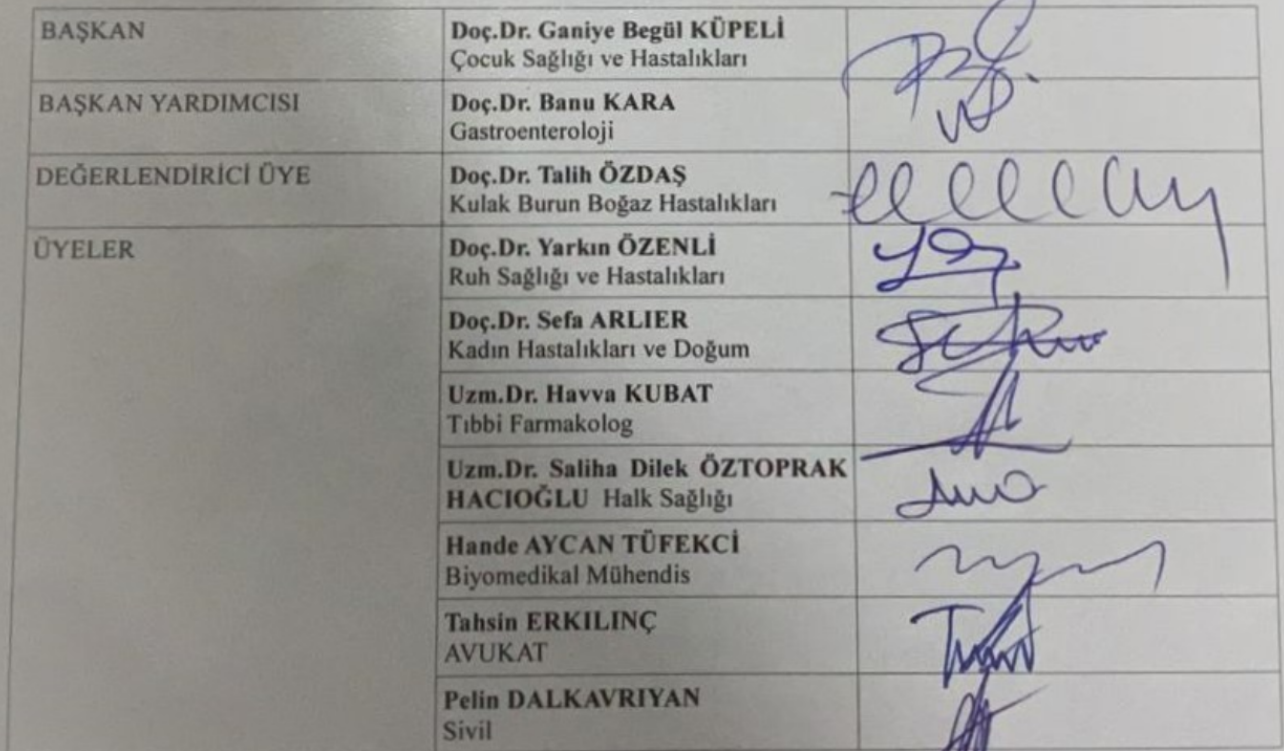 BAŞKAN
Doç.Dr. Ganiye Begül KÜPELİ
Çocuk Sağlığı ve Hastalıkları
BAŞKAN YARDIMCISI
Doç.Dr. Banu KARA
Gastroenteroloji
DEĞERLENDİRİCİ ÜYE
Doç.Dr. Talih ÖZDAŞ
Kulak Burun Boğaz Hastalıkları
ÜYELER
Doç.Dr. Yarkın ÖZENLİ
Ruh Sağlığı ve Hastalıkları
Doç.Dr. Sefa ARLIER
Kadın Hastalıkları ve Doğum
Uzm.Dr. Havva KUBAT
Tıbbi Farmakolog
Uzm.Dr. Saliha Dilek ÖZTOPRAK
HACIOĞLU Halk Sağlığı
Hande AYCAN TÜFEKCİ
Biyomedikal Mühendis
Tahsin ERKILINÇ
AVUKAT
Pelin DALKAVRIYAN
Sivil